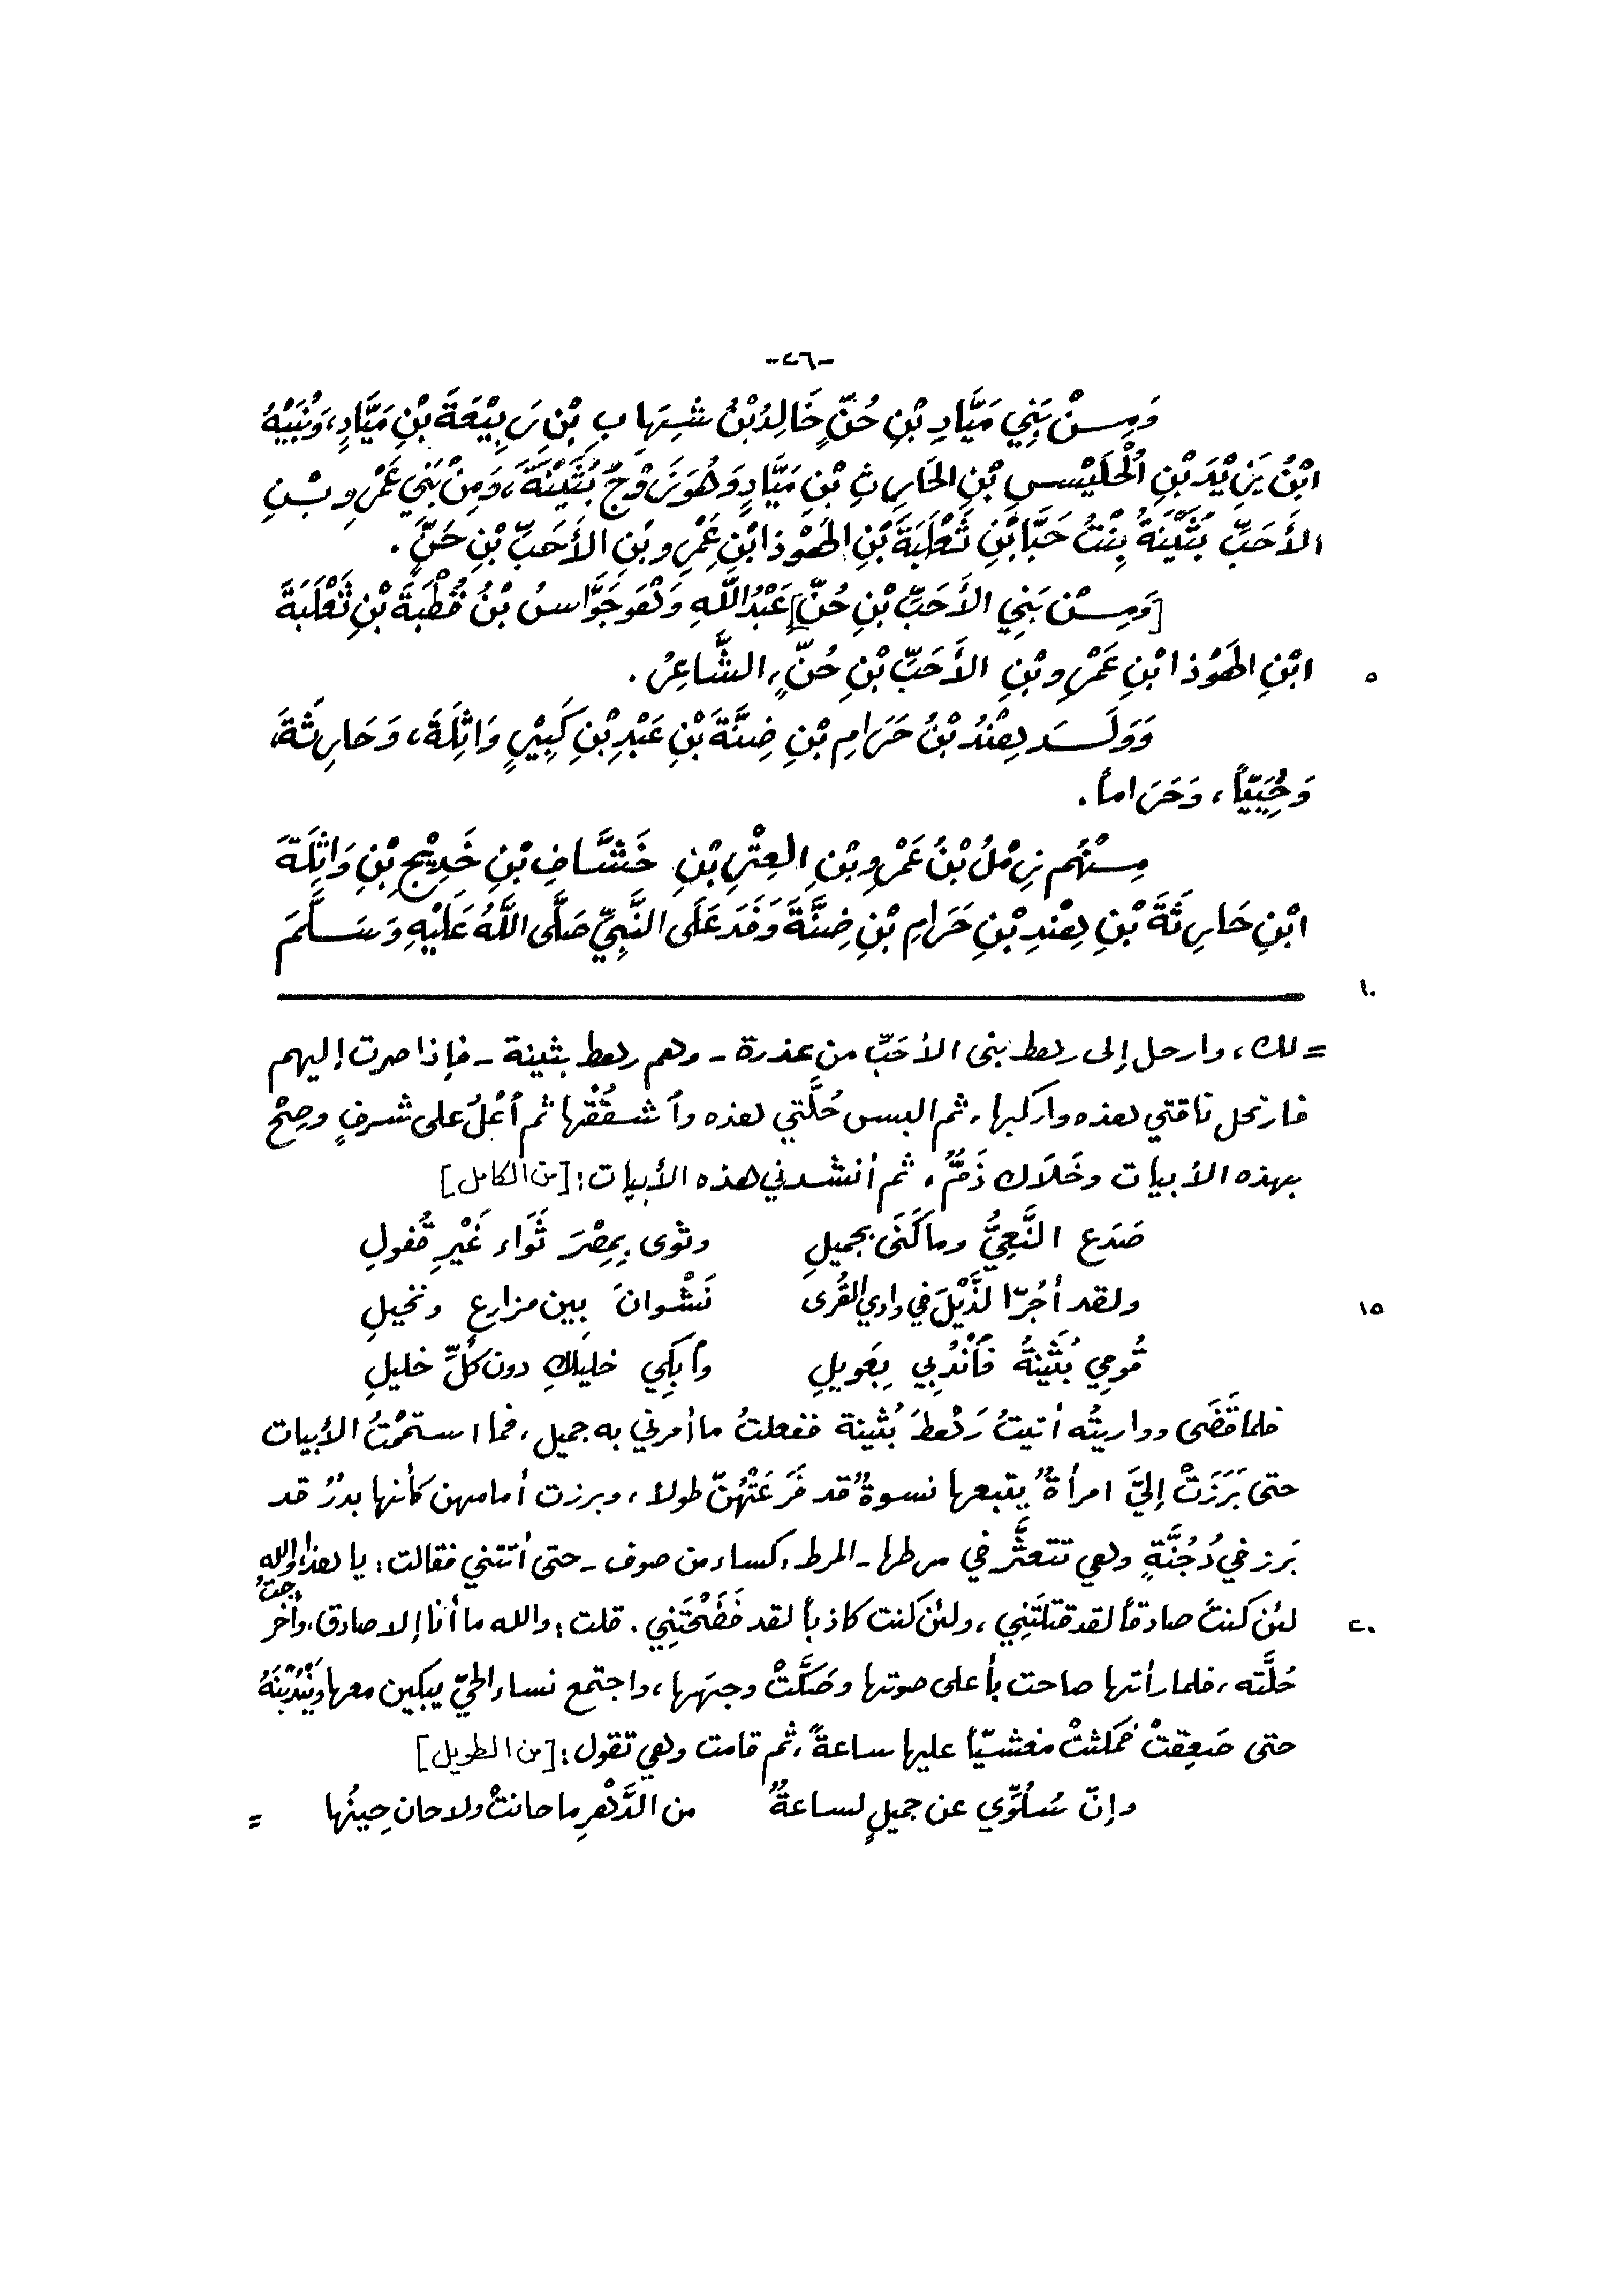 -٢٦-
وَمِنْ بَنِي مَيَّادِ بْنِ حُنٍّ خَالِدُ بْنُ شِهَابِ بْنِ رَبِيْعَةَ بْنِ مَيَّادٍ، وَنُبَيْهُ
ابْنُ يَزِيْدَ بْنِ الْحُلَيْسِ بْنِ الحَارِثِ بْنِ مَيَّادٍ وَهُوَ زَوْجُ بُثَيْنَةَ، وَمِنْ بَنِي عَمْرِو بْنِ
الأَحَبِّ بُثَيْنَةُ بِنْتُ حَبَّا بْنِ ثَعْلَبَةَ بْنِ الهَوْذا بْنِ عَمْرِو بْنِ الأَحَبِّ بْنِ حُنٍّ .
[وَمِنْ بَنِي الأَحَبِّ بْنِ حُنٍّ] عَبْدُ اللَّهِ وَهْوَ جَوَّاسُ بْنُ قُطْبَةَ بْنِ ثَعْلَبَةَ
ابْنِ الهَوْذا بْنِ عَمْرِو بْنِ الأَحَبِّ بْنِ حُنٍّ، الشَّاعِرُ . ٥
وَوَلَــدَ هِنْدُ بْنُ حَرَامِ بْنِ ضِنَّةَ بْنِ عَبْدِ بْنِ كَبِيْرٍ وَاثِلَةَ، وَحَارِثَةَ،
وَحُيَيّاً، وَحَرَاماً .
مِنْهُم زِمْلُ بْنُ عَمْرِو بْنِ العِتْرِ بْنِ خَشَّافِ بْنِ خَدِيْجِ بْنِ وَاثِلَةَ
ابْنِ حَارِثَةَ بْنِ هِنْدِ بْنِ حَرَامِ بْنِ ضِنَّةَ وَفَدَ عَلَى النَّبِيِّ صَلَّى اللَّهُ عَلَيْهِ وَسَلَّمَ
١٠
= لك، وارحل إلى رهط بني الأحَبِّ من عذرة - وهم رهط بثينة - فإذا صرت إليهم
فارتحل ناقتي هذه واركبها، ثم البس حُلَّتي هذه وٱشقُقْها ثم ٱعْلُ على شرفٍ وصِحْ
بهذه الأبيات وخَلاَك ذَمٌّ، ثم أنشدني هذه الأبيات: [من الكامل]
صَدَع النَّعِيُّ وما كَنَى بجميلِ وثوى بِمِصْرَ ثَوَاء غَيْرِ قُفولِ
ولقد أجُرّ الذَّيْلَ في وادي القُرى نَشْوانَ بين مزارعٍ ونخيلِ ١٥
قُومِي بُثَيْنَةُ فٱنْدُبِي بِعَويلِ وٱبكِي خليلَكِ دون كُلِّ خليلِ
فلما قَضَى وواريتُه أتيتُ رَهْطَ بُثينة ففعلتُ ما أمرني به جميل، فما استتممْتُ الأبيات
حتى بَرَزَتْ إليَّ امرأةٌ يتبعها نسوةٌ قد فَرَعَتْهُنّ طولاً، وبرزت أمامهن كأنها بدرٌ قد
بَرز في دُجُنَّةٍ وهي تتعثَّر في مرطها - المرط: كساء من صوف - حتى أتتني فقالت: يا هذا والله
لئن كنتَ صادقاً لقد قتلتَني، ولئن كنت كاذباً لقد فَضَحْتَني. قلت: والله ما أنا إلا صادق، وأخرجتُ ٢٠
حُلَّته، فلما رأتها صاحت بأعلى صوتها وصَكَّتْ وجهَها، واجتمع نساء الحيّ يبكين معها ويَنْدُبْنَهُ
حتى صَعِقتْ فمكثتْ مغشيّاً عليها ساعةً، ثم قامت وهي تقول: [من الطويل]
وإنّ سُلُوِّي عن جميلٍ لساعةٌ من الدَّهْرِ ما حانتْ ولا حان حِينُها =